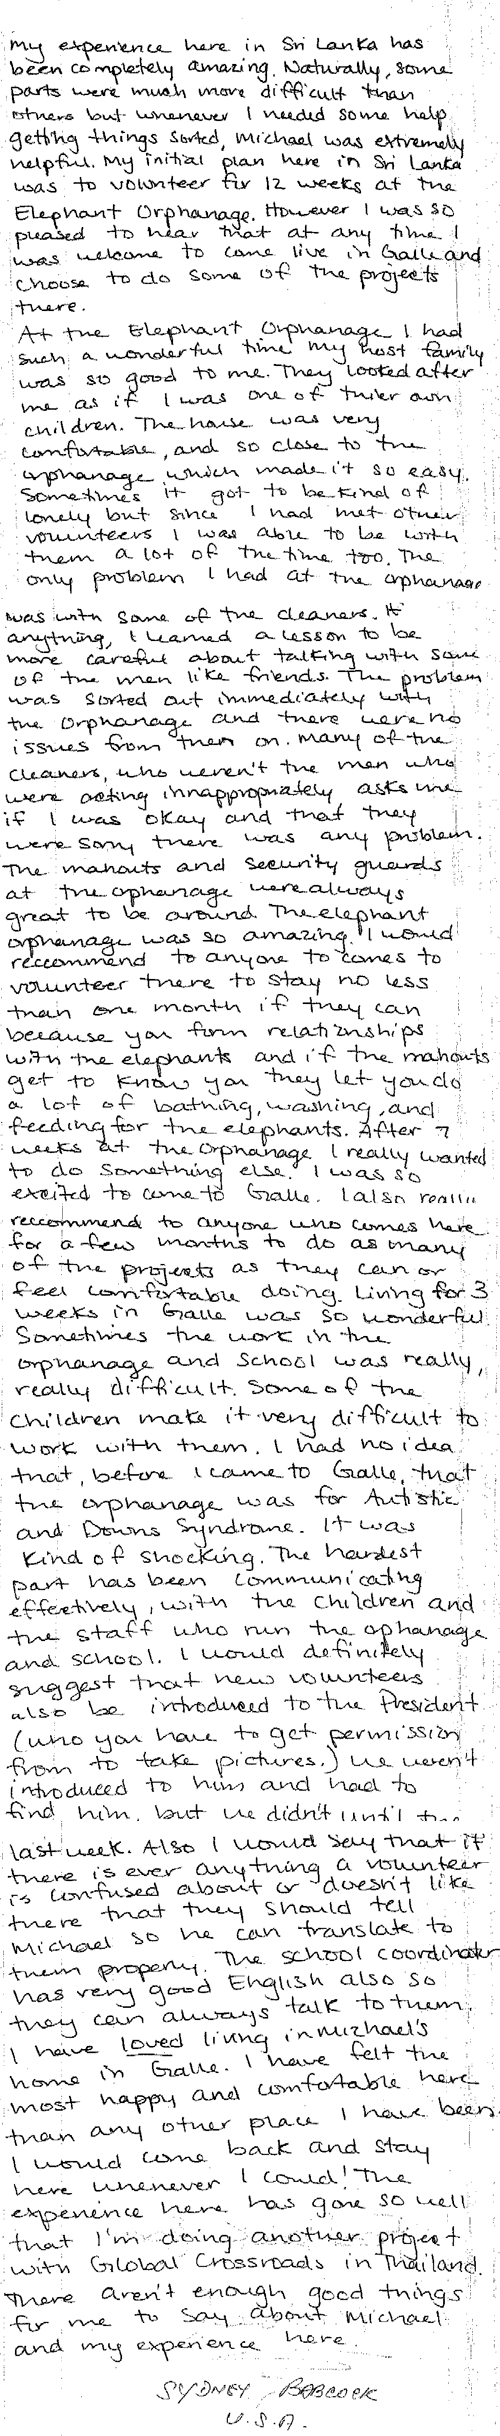 My experience here in Sri Lanka has
been completely amazing. Naturally, some
parts were much more difficult than
others but whenever I needed some help
getting things sorted, Michael was extremely
helpful. My initial plan here in Sri Lanka
was to volunteer for 12 weeks at the
Elephant Orphanage. However I was so
pleased to hear that at any time I
was welcome to come live in Galle and
choose to do some of the projects
there.
At the Elephant Orphanage I had
such a wonderful time my host family
was so good to me. They looked after
me as if I was one of thier own
children. The house was very
comfortable, and so close to the
orphanage which made it so easy.
Sometimes it got to be kind of
lonely but since I had met other
volunteers I was able to be with
them a lot of the time too. The
only problem I had at the orphanage
was with some of the cleaners. If
anything, I learned a lesson to be
more careful about talking with some
of the men like friends. The problem
was sorted out immediately with
the orphanage and there were no
issues from then on. Many of the
cleaners, who weren't the men who
were acting innappropriately asks me
if I was okay and that they
were sorry there was any problem.
The mahouts and security guards
at the orphanage were always
great to be around. The elephant
orphanage was so amazing. I would
reccommend to anyone to comes to
volunteer there to stay no less
than one month if they can
because you form relationships
with the elephants and if the mahouts
get to know you they let you do
a lot of bathing, washing, and
feeding for the elephants. After 7
weeks at the orphanage I really wanted
to do something else. I was so
excited to come to Galle. I also really
reccommend to anyone who comes here
for a few months to do as many
of the projects as they can or
feel comfortable doing. Living for 3
weeks in Galle was so wonderful.
Sometimes the work in the
orphanage and school was really,
really difficult. Some of the
children make it very difficult to
work with them. I had no idea
that, before I came to Galle, that
the orphanage was for Autistic
and Downs Syndrome. It was
kind of shocking. The hardest
part has been communicating
effectively, with the children and
the staff who run the ophanage
and school. I would definitely
suggest that new volunteers
also be introduced to the President
(who you have to get permission
from to take pictures.) We weren't
introduced to him and had to
find him. but we didn't until the
last week. Also I would say that if
there is ever anything a volunteer
is confused about or doesn't like
there that they should tell
Michael so he can translate to
them properly. The school coordinator
has very good English also so
they can always talk to them.
I have loved living in Michael's
home in Galle. I have felt the
most happy and comfortable here
than any other place I have been.
I would come back and stay
here whenever I could! The
experience here has gone so well
that I'm doing another project
with Global Crossroads in Thailand.
There aren't enough good things
for me to say about Michael
and my experience here.
SYDNEY BABCOCK
U.S.A.